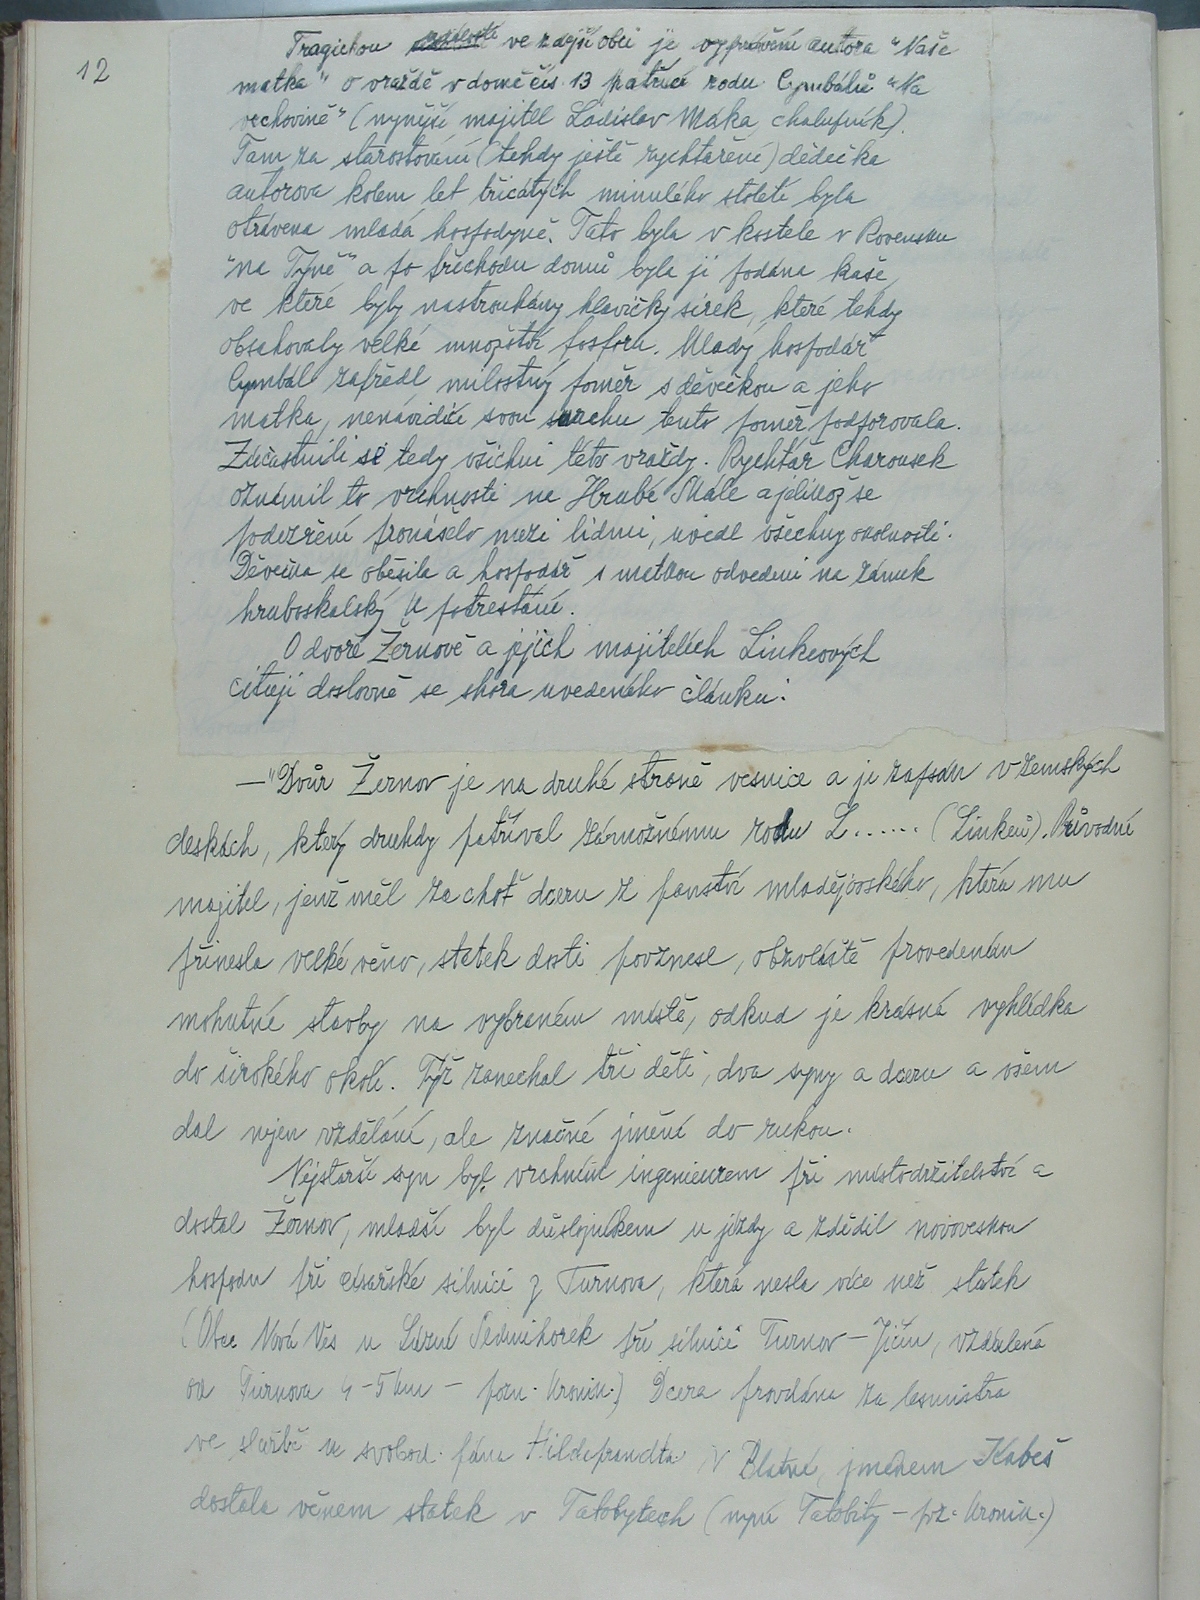 12
Tragickou ve zdejší obci je vyprávění autora "Naše
matka" o vraždě v domě čís. 13 patřící rodu Cymbálů "Na
vrchovině" (nynější majitel Ladislav Máka, chalupník).
Tam za starostování (tehdy ještě rychtaření) dědečka
autorova kolem let třicátých minulého století byla
otrávena mladá hospodyně. Tato byla v kostele v Rovensku
"na Týně" a po příchodu domů byla jí podána kaše,
ve které byly nastrouhány hlavičky sirek, které tehdy
obsahovaly velké množství fosforu. Mladý hospodář
Cymbál zapředl milostný poměr s děvečkou a jeho
matka, nenávidíc svou snachu tento poměr podporovala.
Zúčastnili se tedy všichni této vraždy. Rychtář Charousek
oznámil to vrchnosti na Hrubé Skále a jelikož se
podezření pronášelo mezi lidmi, uvedl všechny okolnosti.
Děvečka se oběsila a hospodář s matkou odvedeni na zámek
hruboskalský k potrestání.
O dvoře Žernově a jejich majitelích Linkeových
cituji doslovně se shora uvedeného článku:
—"Dvůr Žernov je na druhé straně vesnice a je zapsán v zemských
deskách, který druhdy patříval zámožnému rodu L...... (Linkeů). Původní
majitel, jenž měl za choť dceru z panství mladějovského, která mu
přinesla velké věno, statek dosti povznesl, obzvláště provedením
mohutné stavby na vybraném místě, odkud je krásná vyhlídka
do širokého okolí. Týž zanechal tři děti, dva syny a dceru a všem
dal nejen vzdělání, ale značné jmění do rukou.
Nejstarší syn byl vrchním ingenieurem při místodržitelství a
dostal Žernov, mladší byl důstojníkem u jízdy a zdědil novoveskou
hospodu při císařské silnici z Turnova, která nesla více než statek
(Obec Nová Ves u Lázní Sedmihorek při silnici Turnov – Jičín, vzdálená
od Turnova 4-5 km – pozn. kronik.) Dcera provdána za lesmistra
ve službě u svobod. pána Hildeprandta v Blatné, jménem Kabeš
dostala věnem statek v Tatobytech (nyní Tatobity – poz. kronik.)